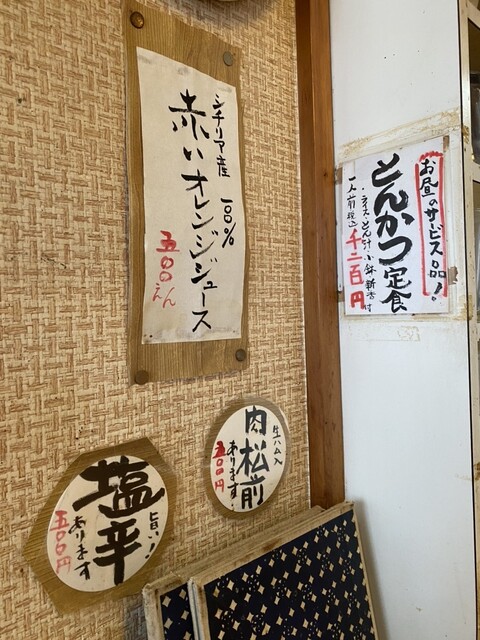 お昼のサービス品!
とんかつ定食
・ライス・とん汁・小鉢・新香付
一人前税込 千二百円
シチリア産 一〇〇%
赤いオレンジジュース
五〇〇えん
生ハム入
肉松前
あります!
五〇〇円
旨い!
塩辛
あります
五〇〇円